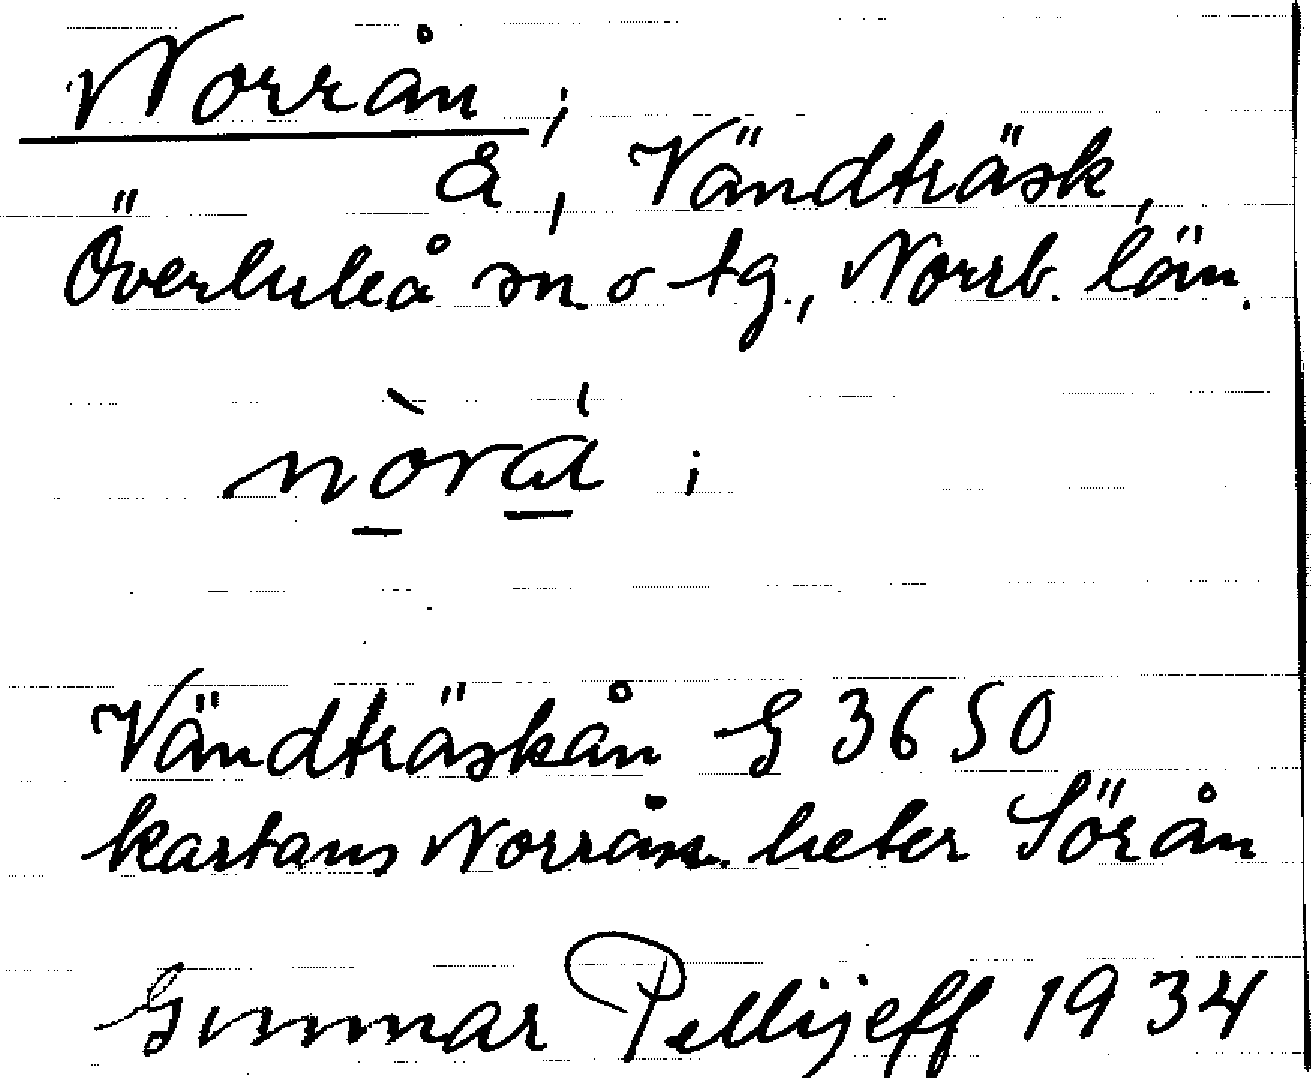 Norrån ;
å, Vändträsk,
Överluleå sn o tg., Norrb. län.
nò̱rá̱ ;
Vändträskån G 3650
kartans Norrån. heter Sörån
Gunnar Pellijeff 1934